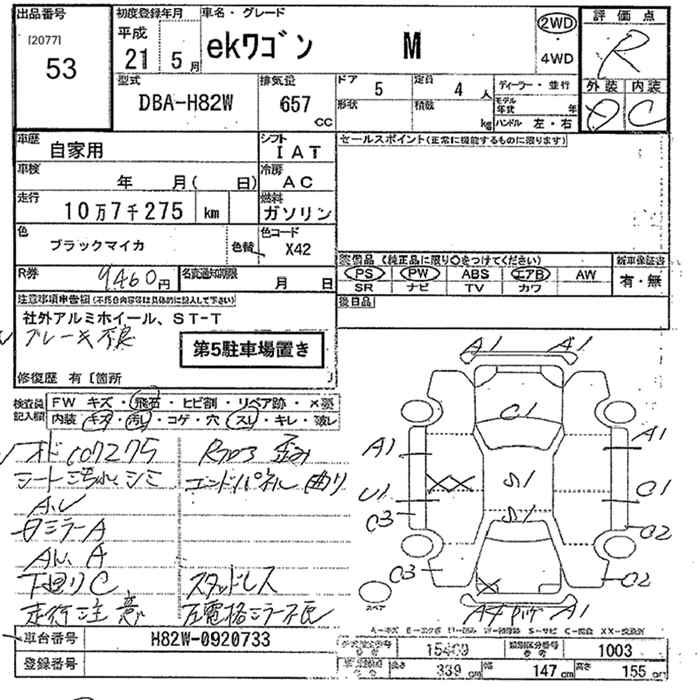 出品番号
[2077]
53
初度登録年月
平成
21 5月
車名・グレード
ekワゴン M
2WD
4WD
評価点
R
外装 内装
C
型式
DBA-H82W
排気量
657
CC
ドア 5
定員 4 人
形状
積載 kg
ディーラー・並行
モデル年式 年
ハンドル 左・右
車歴
自家用
シフト
IAT
セールスポイント(正常に機能するものに限ります)
車検
年 月( 日)
冷房
AC
走行
10万7千275 km
燃料
ガソリン
色
ブラックマイカ
色替
色コード
X42
装備品(純正品に限り○をつけてください)
新車保証書
PS PW ABS エアB AW
有・無
SR ナビ TV カワ
R券
9460円
名変通知期限
月 日
後日品
注意事項申告欄(不具合内容等は具体的に記入して下さい)
社外アルミホイール、ST-T
ブレーキ不良
第5駐車場置き
修復歴 有 [箇所 ]
検査員記入欄
FW キズ・飛石・ヒビ割・リペア跡・×要
内装・キズ・汚レ・コゲ・穴・スレ・キレ・破レ
007275
シート汚れシミ
歪み
エンドパネル 曲り
ミラーA
下廻りC
スタッドレス
走行注意
左電格ミラー不良
A1 A1
C1
A1 A1
S1
U1 C1
S1
C3 C2
C3 C2
スペア
A4 A1
車台番号
H82W-0920733
登録番号
類別区分番号
1003
長さ 339 cm 幅 147 cm 高さ 155 cm